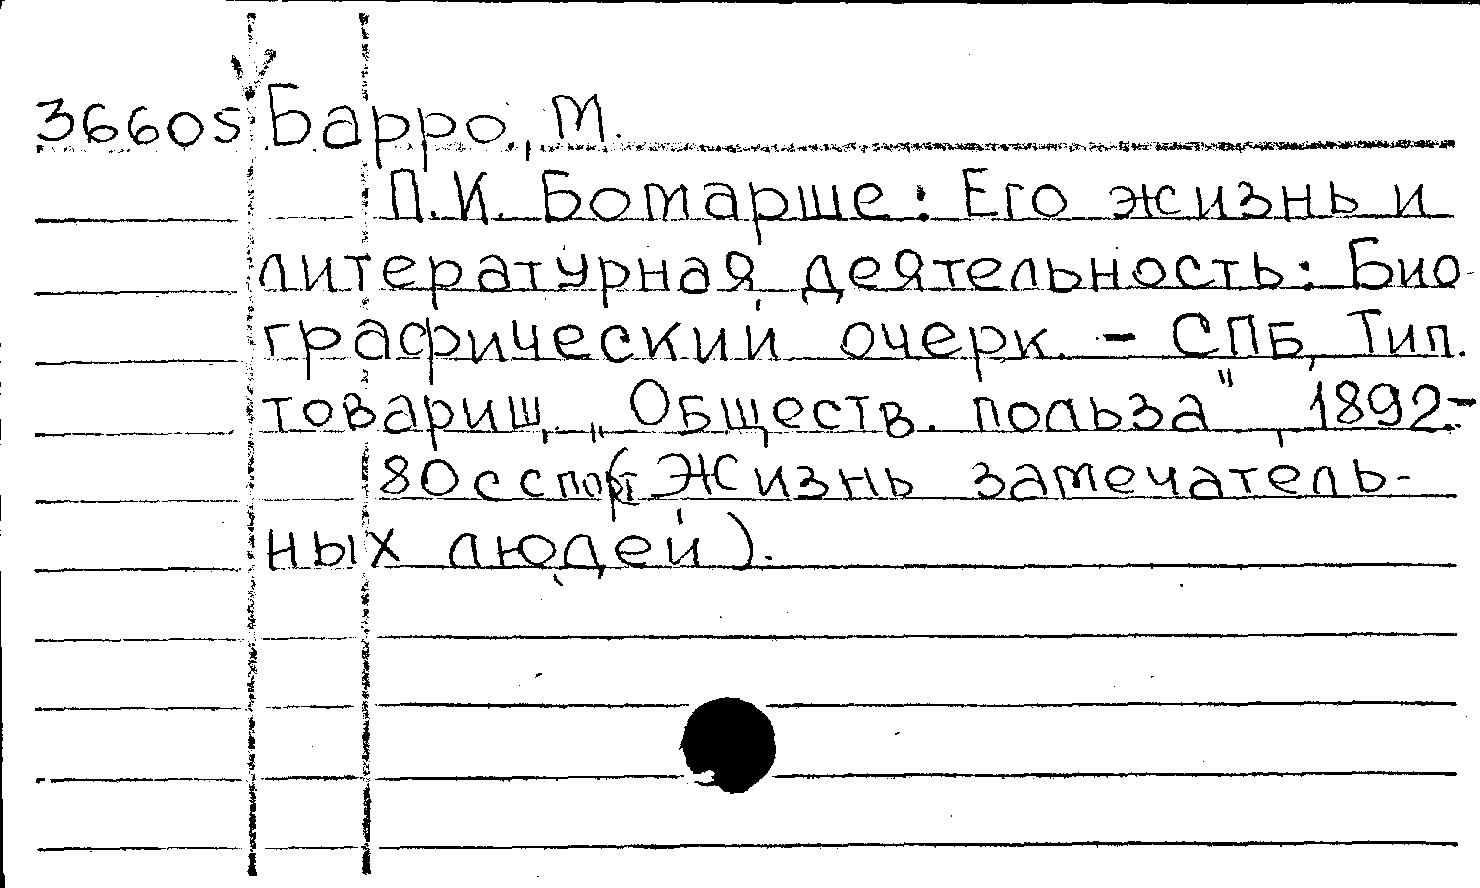 36605 Барро, М.
П.И. Бомарше: Его жизнь и
литературная деятельность: Био-
графический очерк. - СПБ, Тип.
товарищ. „Обществ. польза", 1892.-
80с с порт (Жизнь замечатель-
ных людей).